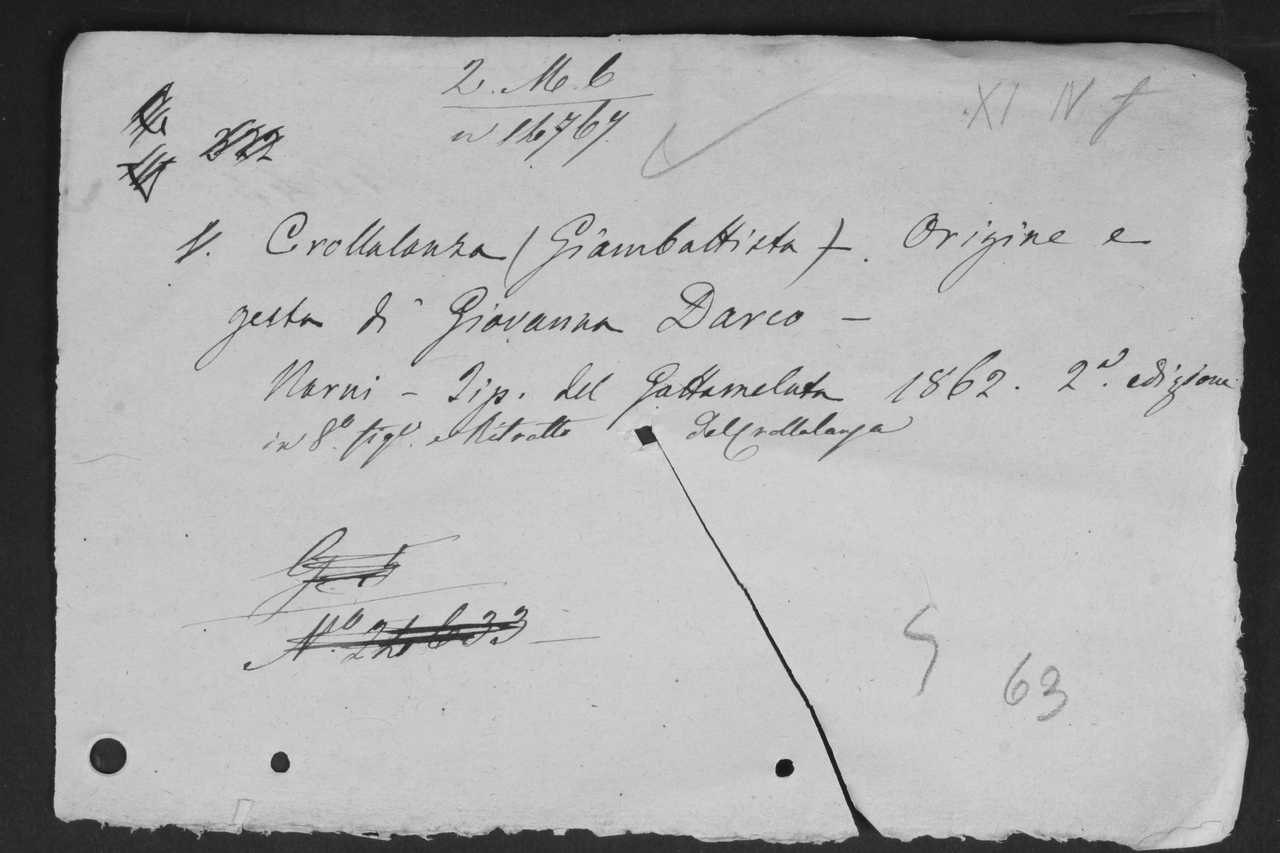 2. M. 6
XI IV f
n 16767.
222
V. Crollalanza (Giambattista). Origine e
gesta di Giovanna Darco —
Narni - Tip. del Gattamelata 1862. 2a. edizione
in 8o. figo. e Ritratto del Crollalanza
No. 24633
63